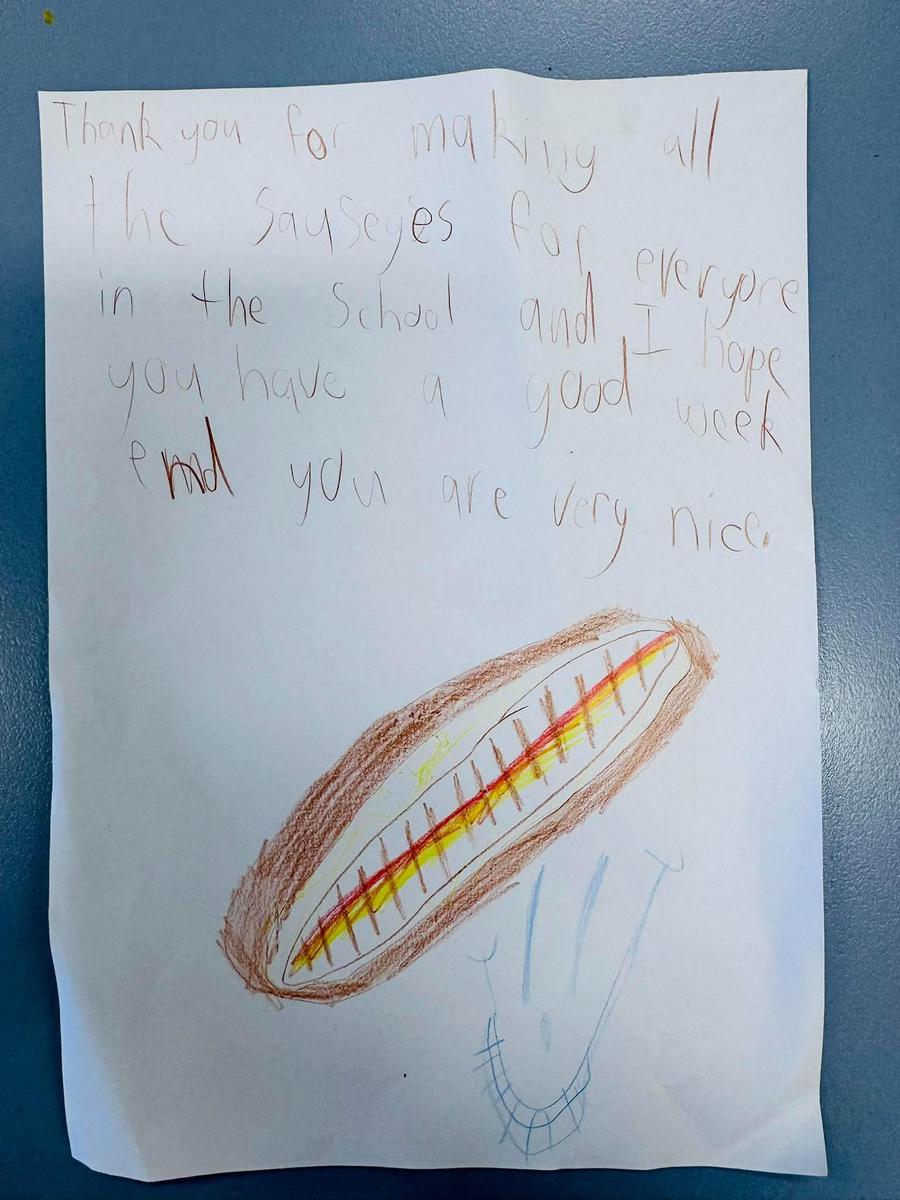 Thank you for making all
the Sauseyes for everyone
in the School and I hope
you have a good week
end you are very nice.